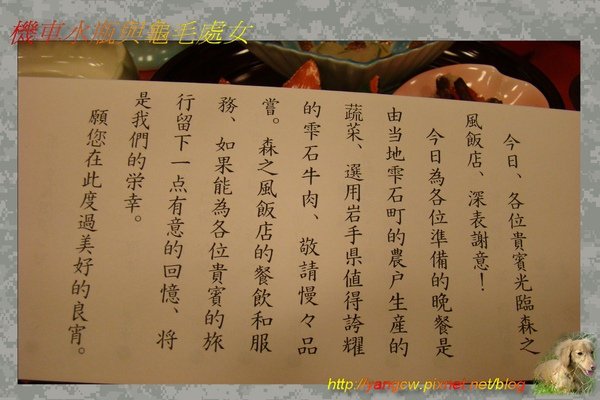 機車水瓶與龜毛處女
今日、各位貴賓光臨森之
風飯店、深表謝意！
今日為各位準備的晚餐是
由当地雫石町的農户生産的
蔬菜、選用岩手県値得誇耀
的雫石牛肉、敬請慢々品
嘗。森之風飯店的餐飲和服
務、如果能為各位貴賓的旅
行留下一点有意的回憶、将
是我們的栄幸。
願您在此度過美好的良宵。
http://yangcw.pixnet.net/blog